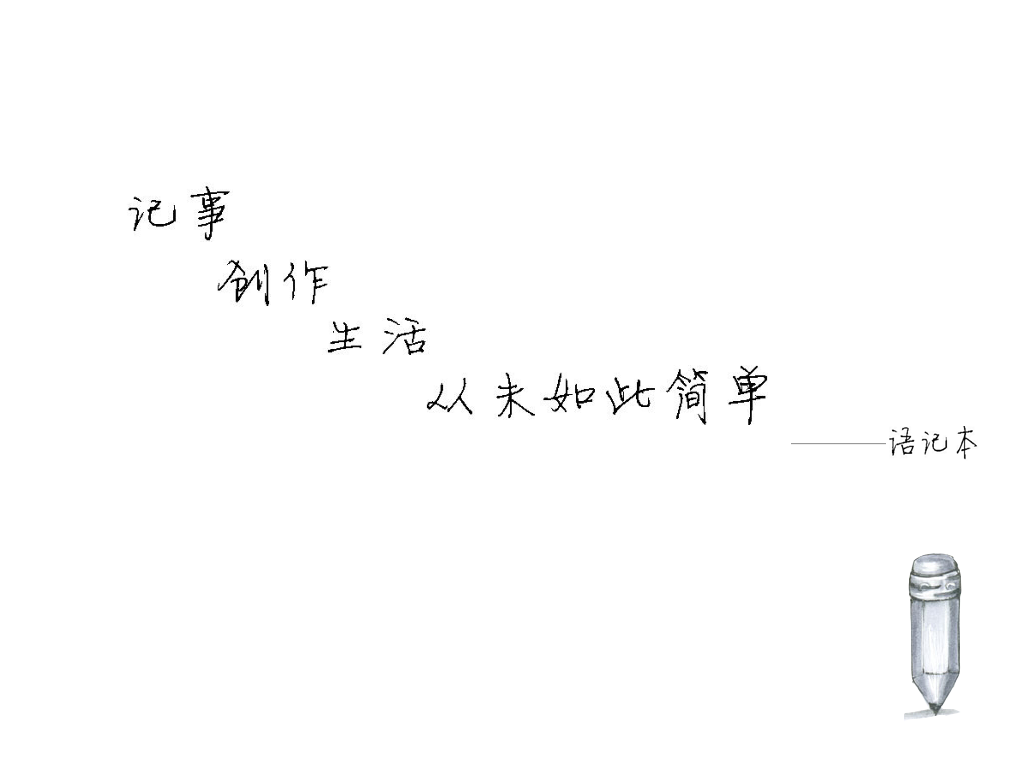 记事
创作
生活
从未如此简单
——语记本